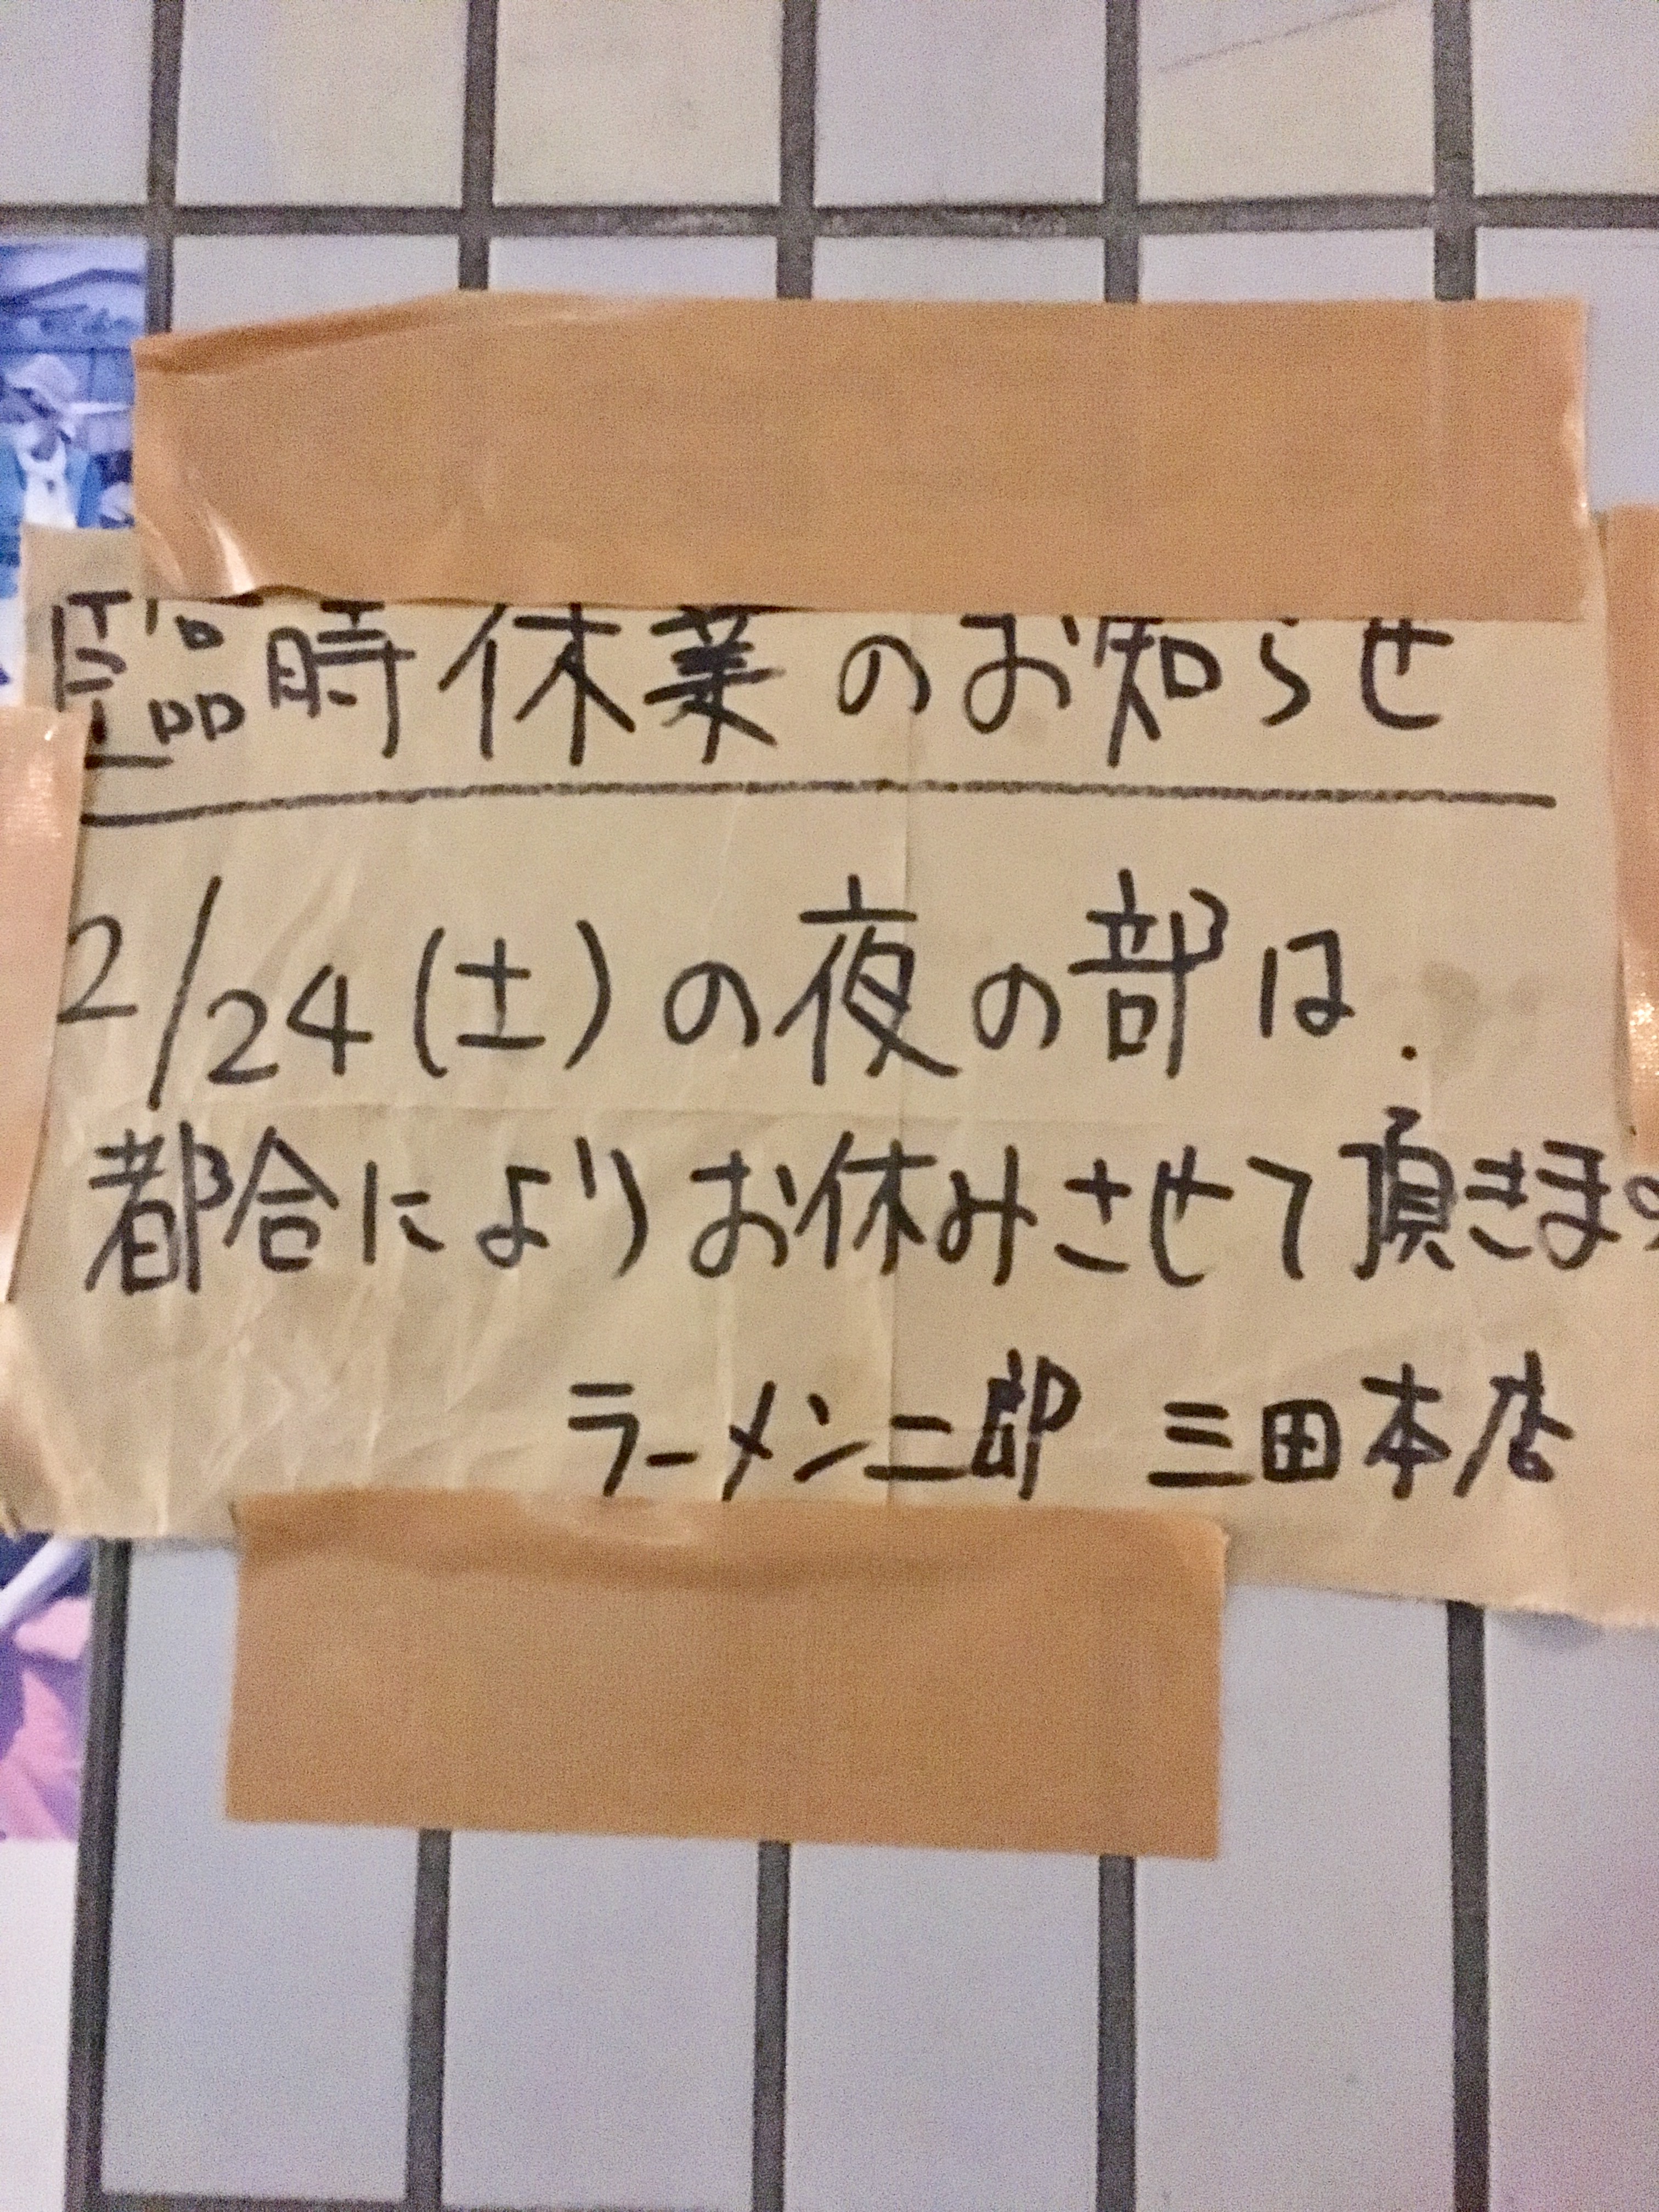 臨時休業のお知らせ
2/24(土)の夜の部は.
都合によりお休みさせて頂きます
ラーメン二郎 三田本店